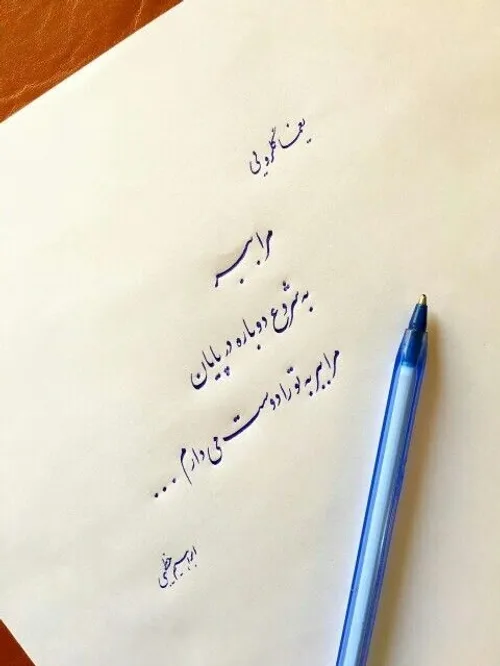 یغما گلرویی
مرا ببر
به شروع دوباره در پایان
مرا ببر به تو را دوست می دارم ...
ابراهیم